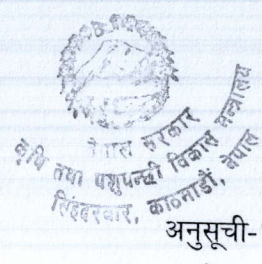 नेपाल सरकार
कृषि तथा पशुपन्छी विकास मन्त्रालय
सिंहदरबार, काठमाडौं, नेपाल
अनुसूची-